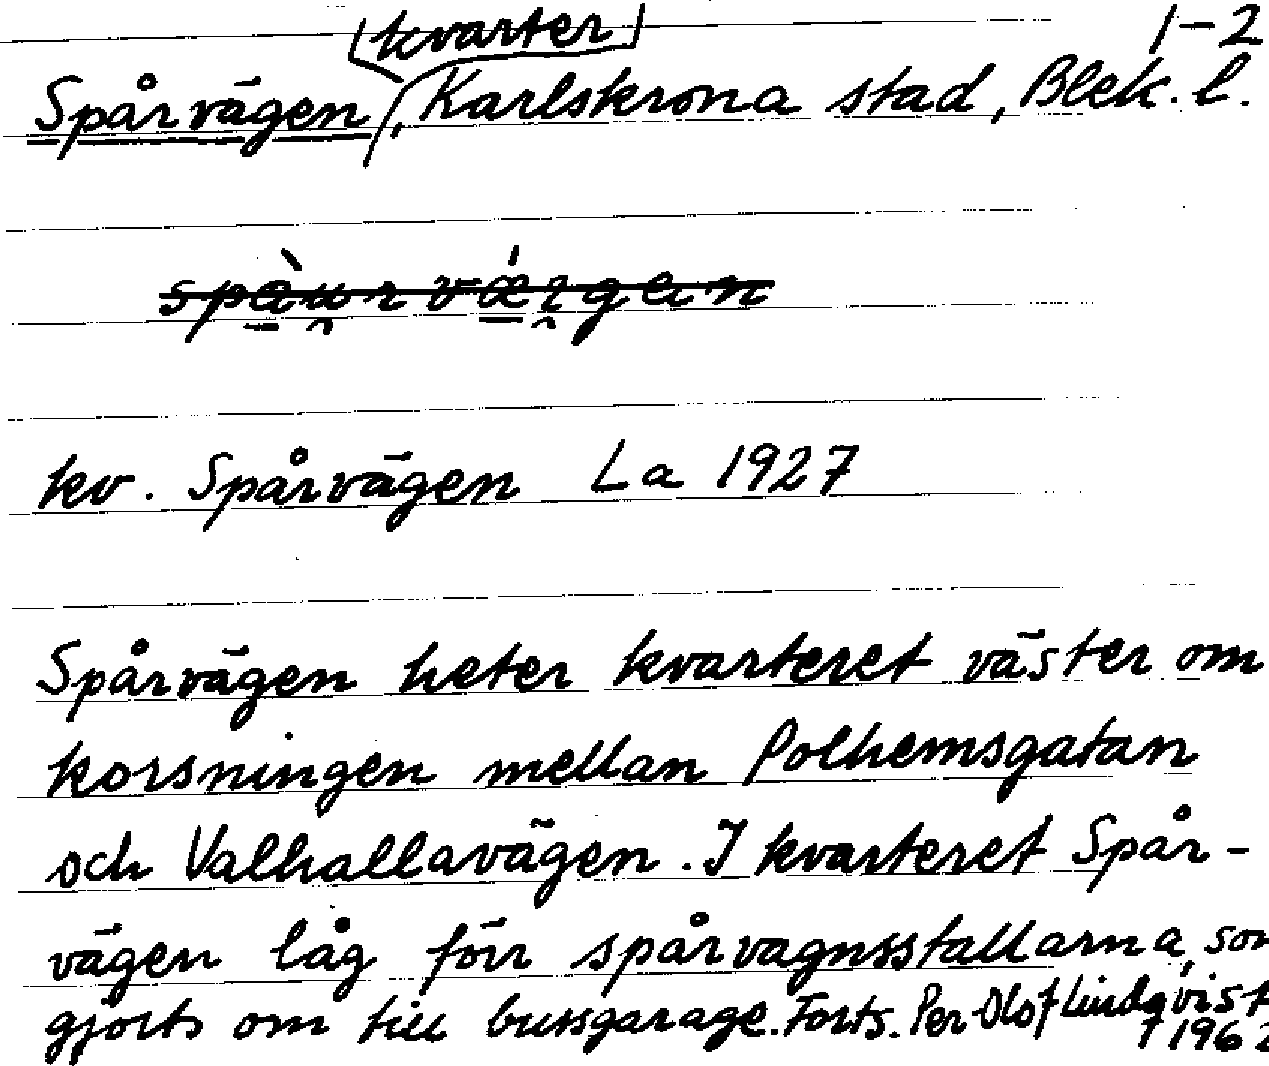 kvarter 1-2
Spårvägen, Karlskrona stad, Blek. l.
kv. Spårvägen La 1927
Spårvägen heter kvarteret väster om
korsningen mellan Polhemsgatan
och Valhallavägen. I kvarteret Spår-
vägen låg förr spårvagnsstallarna, som
gjorts om till bussgarage. Forts. Per Olof Lindqvist
1962